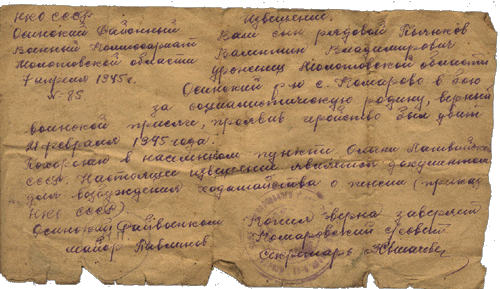 НКО СССР
Осинский Районный
Военный Комиссариат
Молотовской области
7 апреля 1945 г.
№ 85
Извещение.
Ваш сын рядовой
Валентин Владимирович
уроженец Молотовской области
Осинский р-н с. Комарово в бою
за социалистическую родину, верный
воинской присяге, проявив геройство был убит
февраля 1945 года.
Похоронен в населенном пункте Латвийск
СССР. Настоящее извещение является документом
для возбуждения ходатайства о пенсии (приказ
НКО СССР)
Осинский райвоенком
майор
Копия верна заверяет
Комаровский с/совет
Секретарь